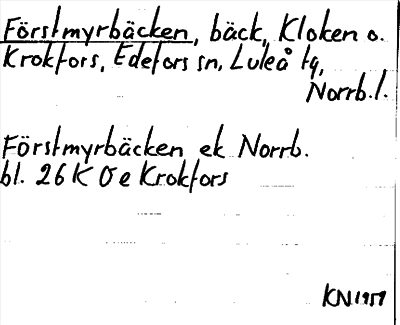 Förstmyrbäcken, bäck, Kloken o.
Kroktors, Edefors sn, Luleå tg,
Norrb. l.
Förstmyrbäcken ek Norrb.
bl. 26 K 0 e Krokfors
KN 1959